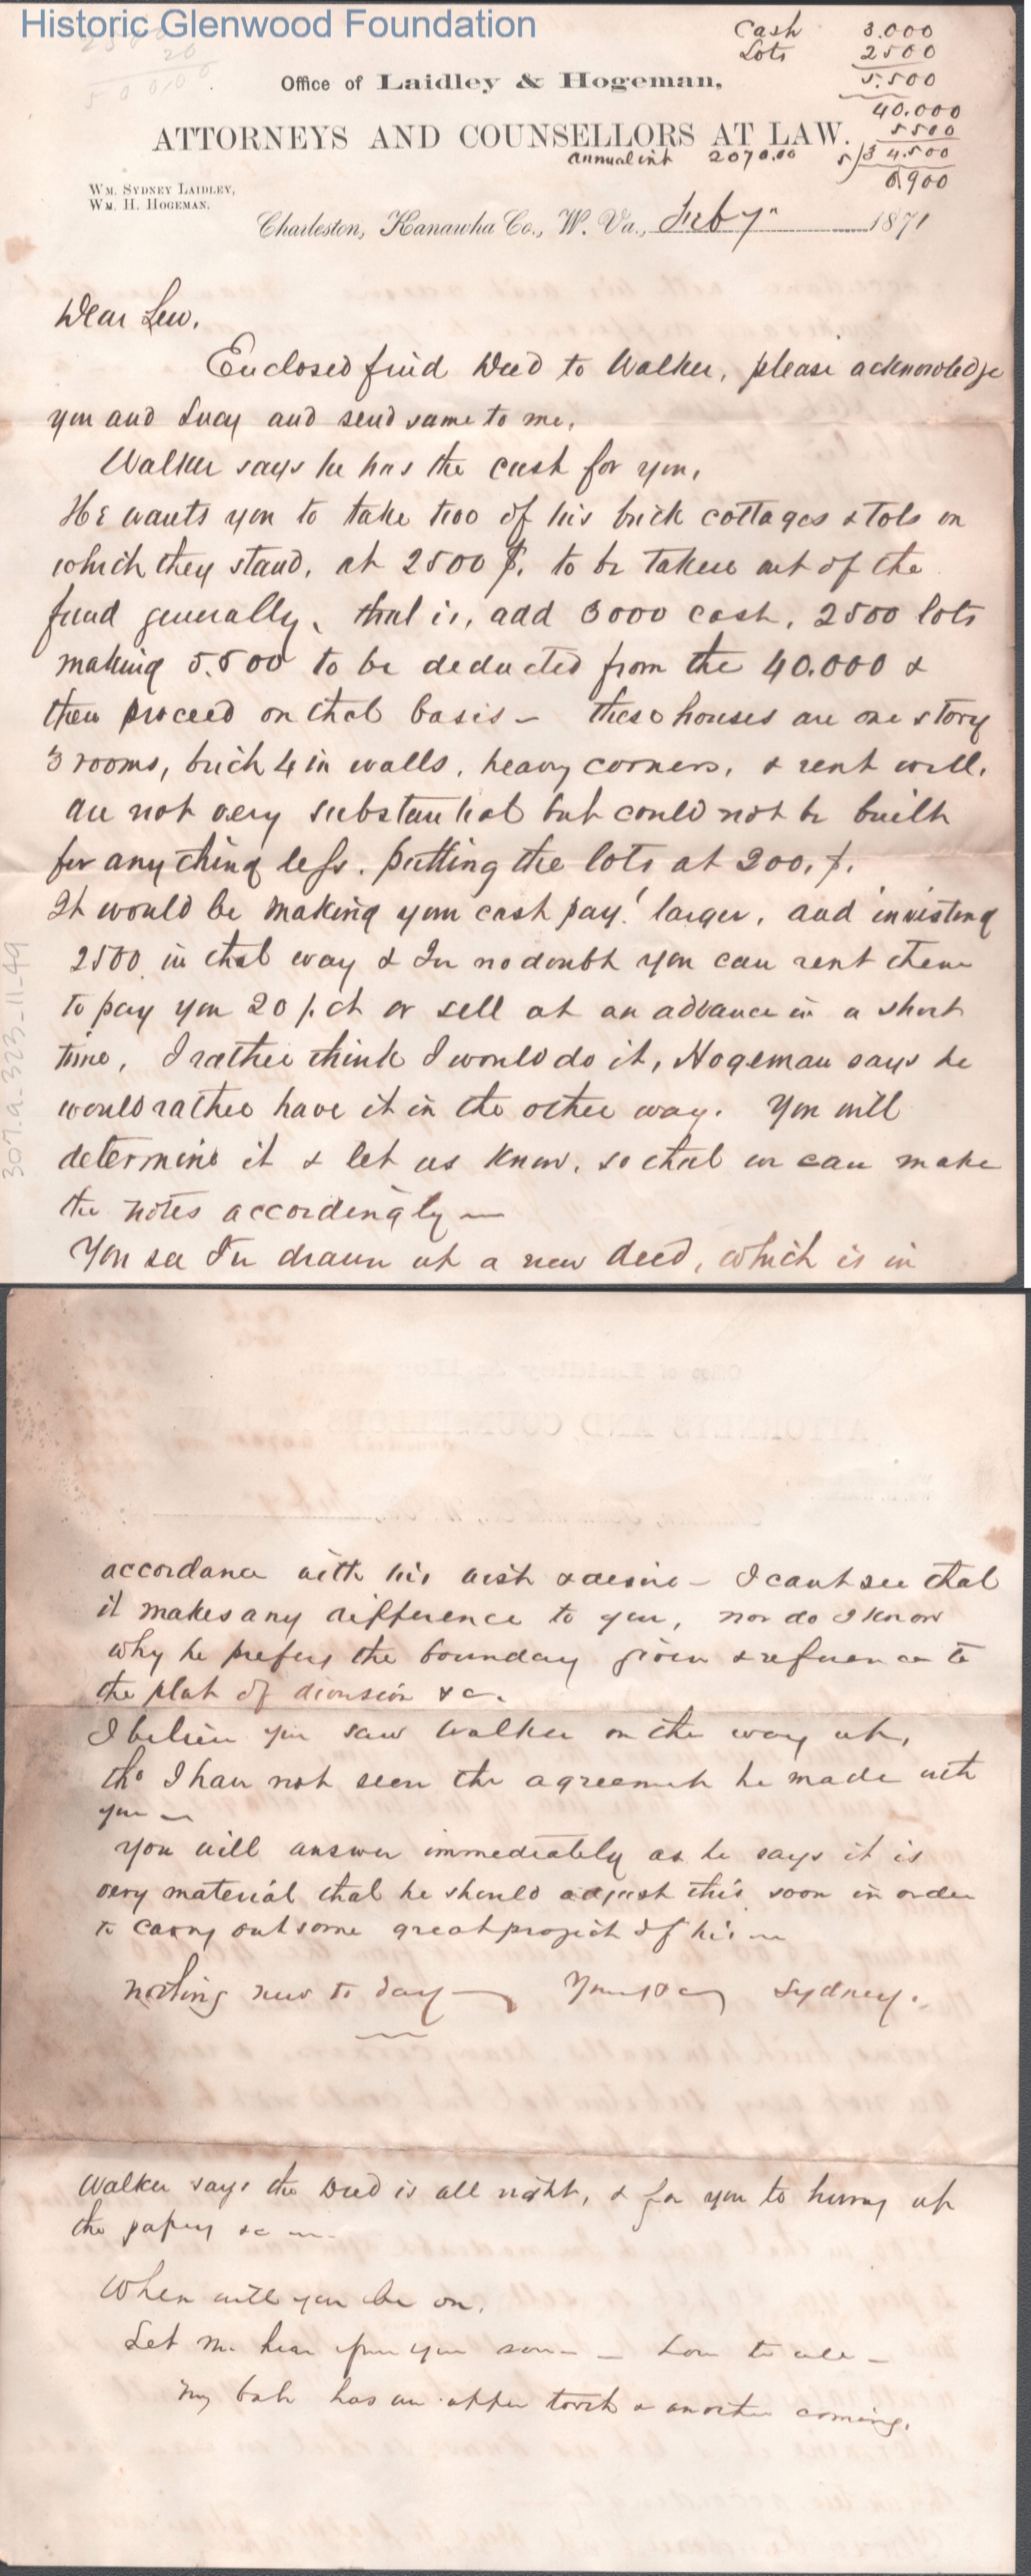 Historic Glenwood Foundation
Cash 3.000
Lots 2500
5.500
40.000
5500
5/34.500
6900
annual int 2070.00
Office of Laidley & Hogeman,
ATTORNEYS AND COUNSELLORS AT LAW.
Wm. Sydney Laidley,
Wm. H. Hogeman.
Charleston, Kanawha Co., W. Va., Feby 1871
Dear Lew,
Enclosed find Deed to Walker, please acknowledge
you and Lucy and send same to me,
Walker says he has the cash for you,
He wants you to take two of his brick cottages & lots on
which they stand, at 2500 $, to be taken out of the
fund generally, that is, add 3000 cash, 2500 lots
making 5.500 to be deducted from the 40.000 &
then proceed on that basis — these houses are one story
3 rooms, brick 4 in walls, heavy corners, & rent well,
are not very substantial but could not be built
for anything less, putting the lots at 200, $.
It would be making your cash pay! larger, and investing
2500 in that way & I've no doubt you can rent them
to pay you 20 p. ct or sell at an advance in a short
time, I rather think I would do it, Hogeman says he
would rather have it in the other way. You will
determine it & let us know, so that we can make
the notes accordingly —
You see I've drawn up a new deed, which is in
accordance with his wish & desire — I cant see that
it makes any difference to you, nor do I know
why he prefers the boundary given & reference to
the plat of division &c.
I believe you saw Walker on the way up,
tho I have not seen the agreement he made with
you —
You will answer immediately as he says it is
very material that he should adjust this soon in order
to carry out some great project of his —
nothing new to day — Yours &c Sydney.
Walker says the Deed is all right, & for you to hurry up
the papers &c —
When will you be on,
Let me hear from you soon — Love to all —
My babe has an upper tooth & another coming,
307.a.323_11_49